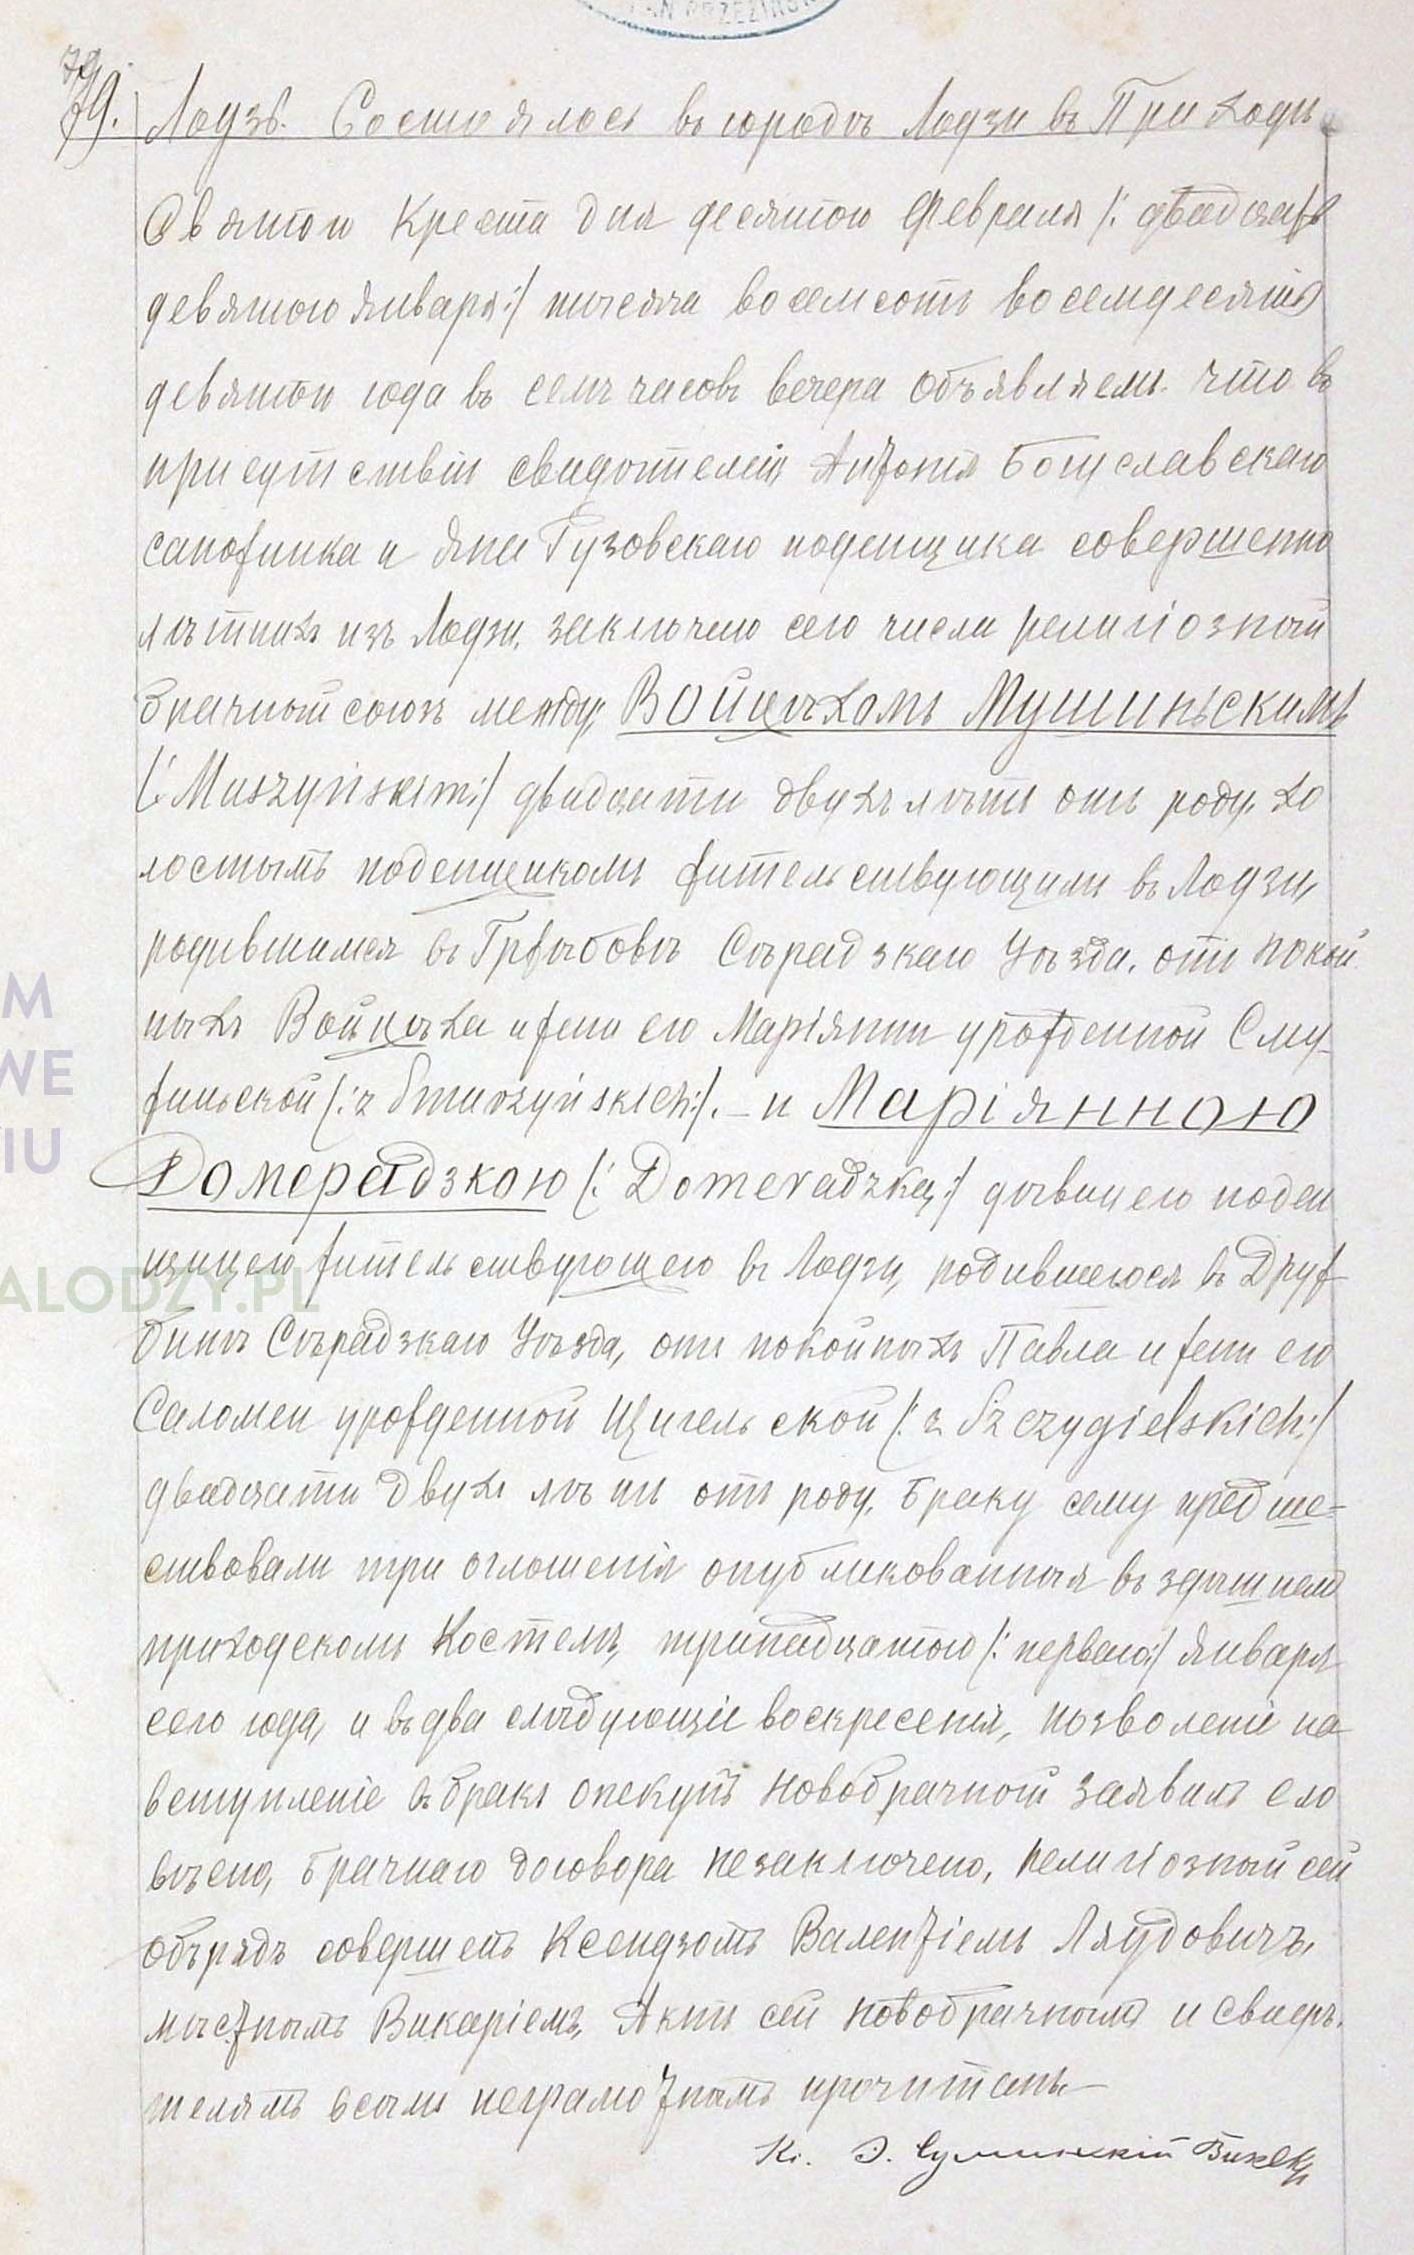 AN BRZEZIŃSK
79
79. Лодзь. Состоялось въ городѣ Лодзи въ Приходѣ
Святого Креста дня десятого Февраля /: двадцать
девятого Января :/ тысяча восемсотъ восемдесятъ
девятого года въ семь часовъ вечера. Объявляемъ что въ
присутствіи свидѣтелей, Антонія Богуславскаго
сапожника и Яна Гузовскаго поденщика совершенно
лѣтнихъ изъ Лодзи, заключено сего числа религіозный
брачный союзъ между Войцѣхомъ Мушиньскимъ
/: Muszyńskim :/ двадцати двухъ лѣтъ отъ роду, хо
лостымъ поденщикомъ жительствующимъ въ Лодзи,
родившимся въ Гржыбовѣ Сѣрадзкаго Уѣзда, отъ покой
ныхъ Войцѣха и жены его Маріянны урожденной Сму-
жиньской /: z Smurzyńskich :/. – и Маріянною
Домерадзкою /: Domeradzką :/ дѣвицею поден
щицею жительствующею въ Лодзи, родившеюся въ Друж
бинѣ Сѣрадзкаго Уѣзда, отъ покойныхъ Павла и жены его
Саломеи урожденной Щигельской /: z Szczygielskich :/
двадцати двухъ лѣтъ отъ роду. Браку сему предше=
ствовали три оглошенія опубликованныя въ здѣшнемъ
приходскомъ Костелѣ, тринадцатого /: перваго :/ Января
сего года, и въ два слѣдующіе воскресенія, позволеніе на
вступленіе въ бракъ опекунъ новобрачной заявилъ сло
вѣсно, брачнаго договора незаключено. Религіозный сей
обърядъ совершенъ Ксендзомъ Валентіемъ Ляудовичъ,
мѣстнымъ Викаріемъ. Актъ сей новобрачнымъ и свидѣ.
телямъ всѣмъ неграмотнымъ прочитанъ. –
Кс. Э. Сулинскій
M
WE
IU
ALODZY.PL